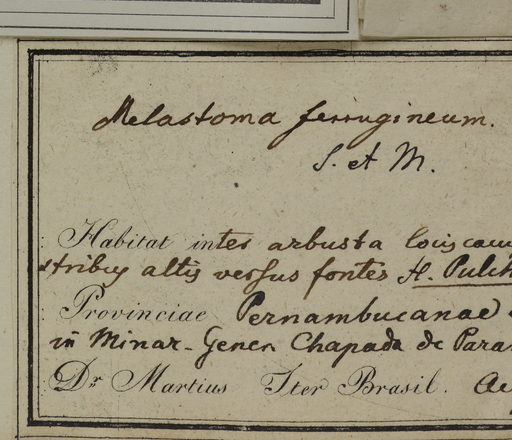 Melastoma ferrugineum.
S. et M.
Habitat inter arbusta locis cam
stribus altis versus fontes H. Pulch
Provinciae Pernambucanae
in Minar. Gener. Chapada de Para
Dr Martius Iter Brasil.